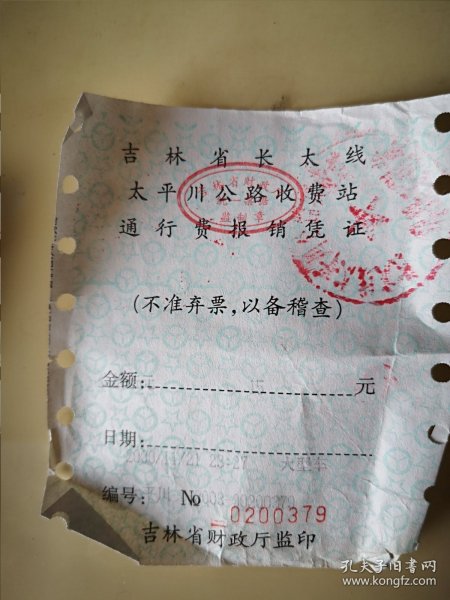 吉林省长太线
太平川公路收费站
通行费报销凭证
监制章
(不准弃票，以备稽查)
金额: 元
日期:
23:27
编号: No 0200379
吉林省财政厅监印
孔夫子旧书网
www.kongfz.com